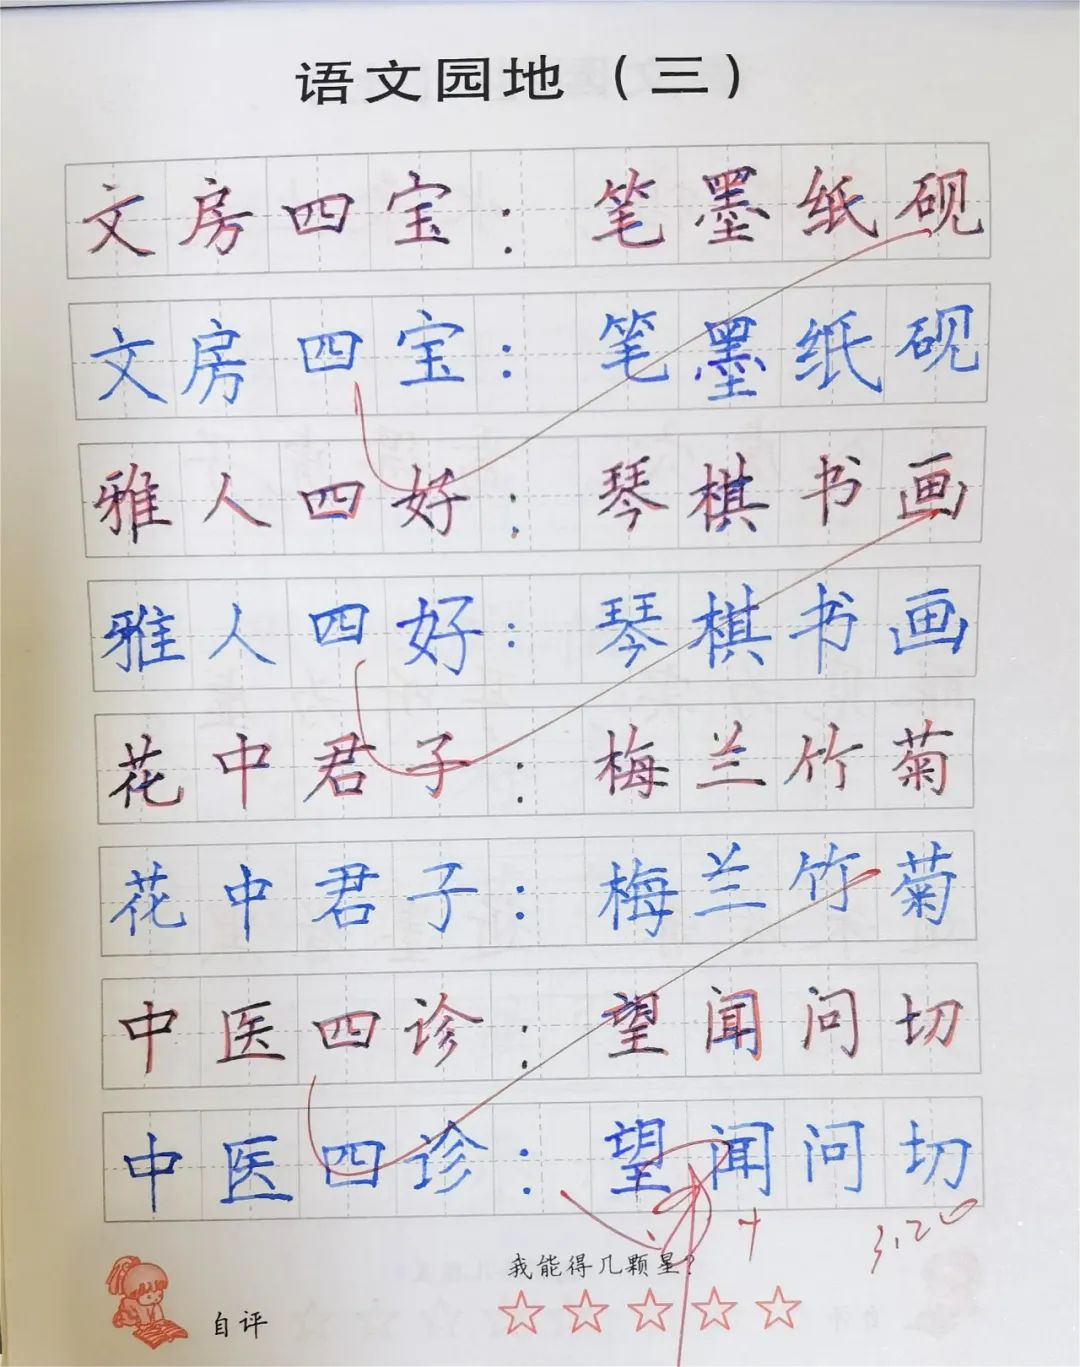 语文园地（三）
文房四宝：笔墨纸砚
文房四宝：笔墨纸砚
雅人四好：琴棋书画
雅人四好：琴棋书画
花中君子：梅兰竹菊
花中君子：梅兰竹菊
中医四诊：望闻问切
中医四诊：望闻问切
3.20
我能得几颗星?
自评